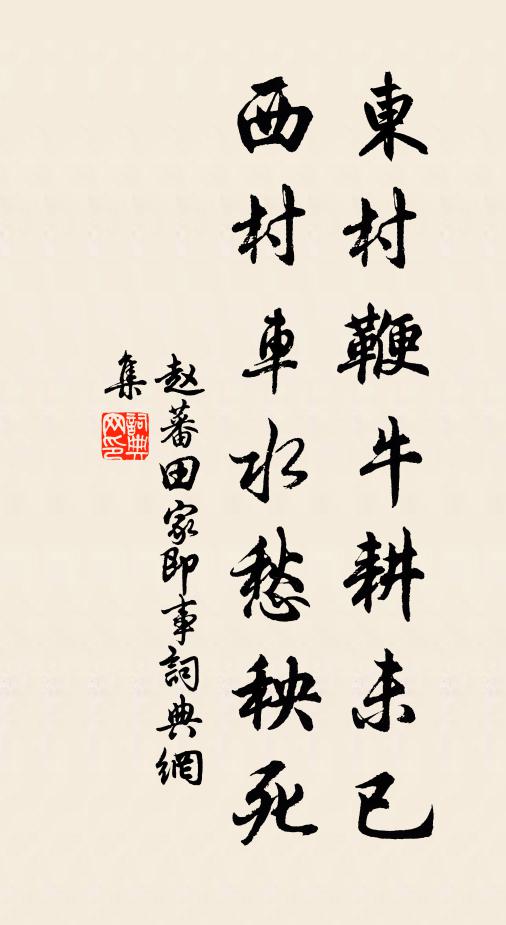 東村鞭牛耕未已
西村車水愁秧死
赵蕃田家即事詞典網
集
詞典
网印